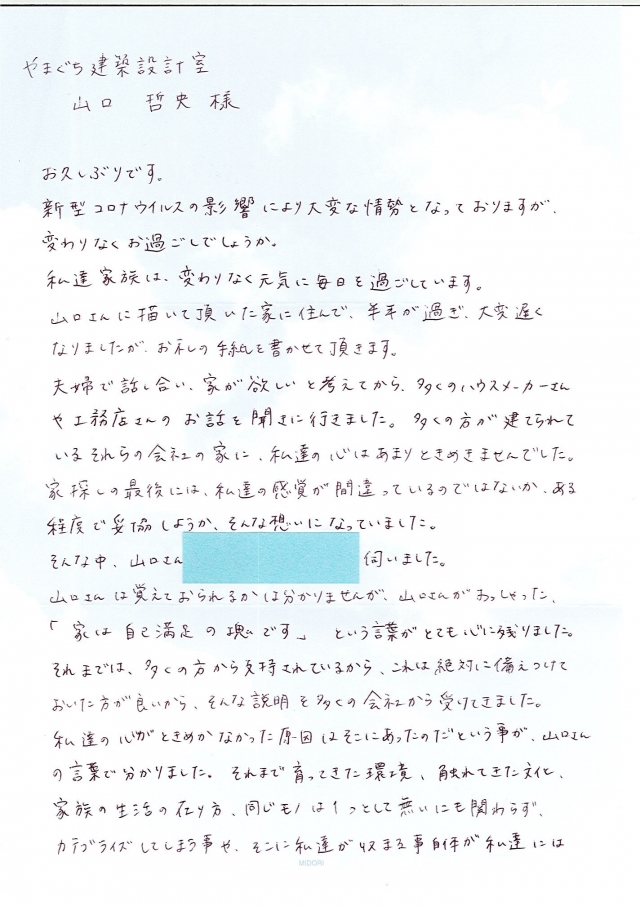 やまぐち建築設計室
山口 哲央 様
お久しぶりです。
新型コロナウイルスの影響により大変な情勢となっておりますが、
変わりなくお過ごしでしょうか。
私達家族は、変わりなく元気に毎日を過ごしています。
山口さんに描いて頂いた家に住んで、半年が過ぎ、大変遅く
なりましたが、お礼の手紙を書かせて頂きます。
夫婦で話し合い、家が欲しいと考えてから、多くのハウスメーカーさん
や工務店さんのお話を聞きに行きました。多くの方が建てられて
いるそれらの会社の家に、私達の心はあまりときめきませんでした。
家探しの最後には、私達の感覚が間違っているのではないか、ある
程度で妥協しようか、そんな想いになっていました。
そんな中、山口さん 伺いました。
山口さんは覚えておられるかは分かりませんが、山口さんがおっしゃった、
「家は自己満足の塊です」という言葉がとても心に残りました。
それまでは、多くの方から支持されているから、これは絶対に備えつけて
おいた方が良いから、そんな説明を多くの会社から受けてきました。
私達の心がときめかなかった原因はそこにあったのだという事が、山口さん
の言葉で分かりました。それまで育ってきた環境、触れてきた文化、
家族の生活の在り方、同じモノは1つとして無いにも関わらず、
カテゴライズしてしまう事や、そこに私達が収まる事自体が私達には
MIDORI